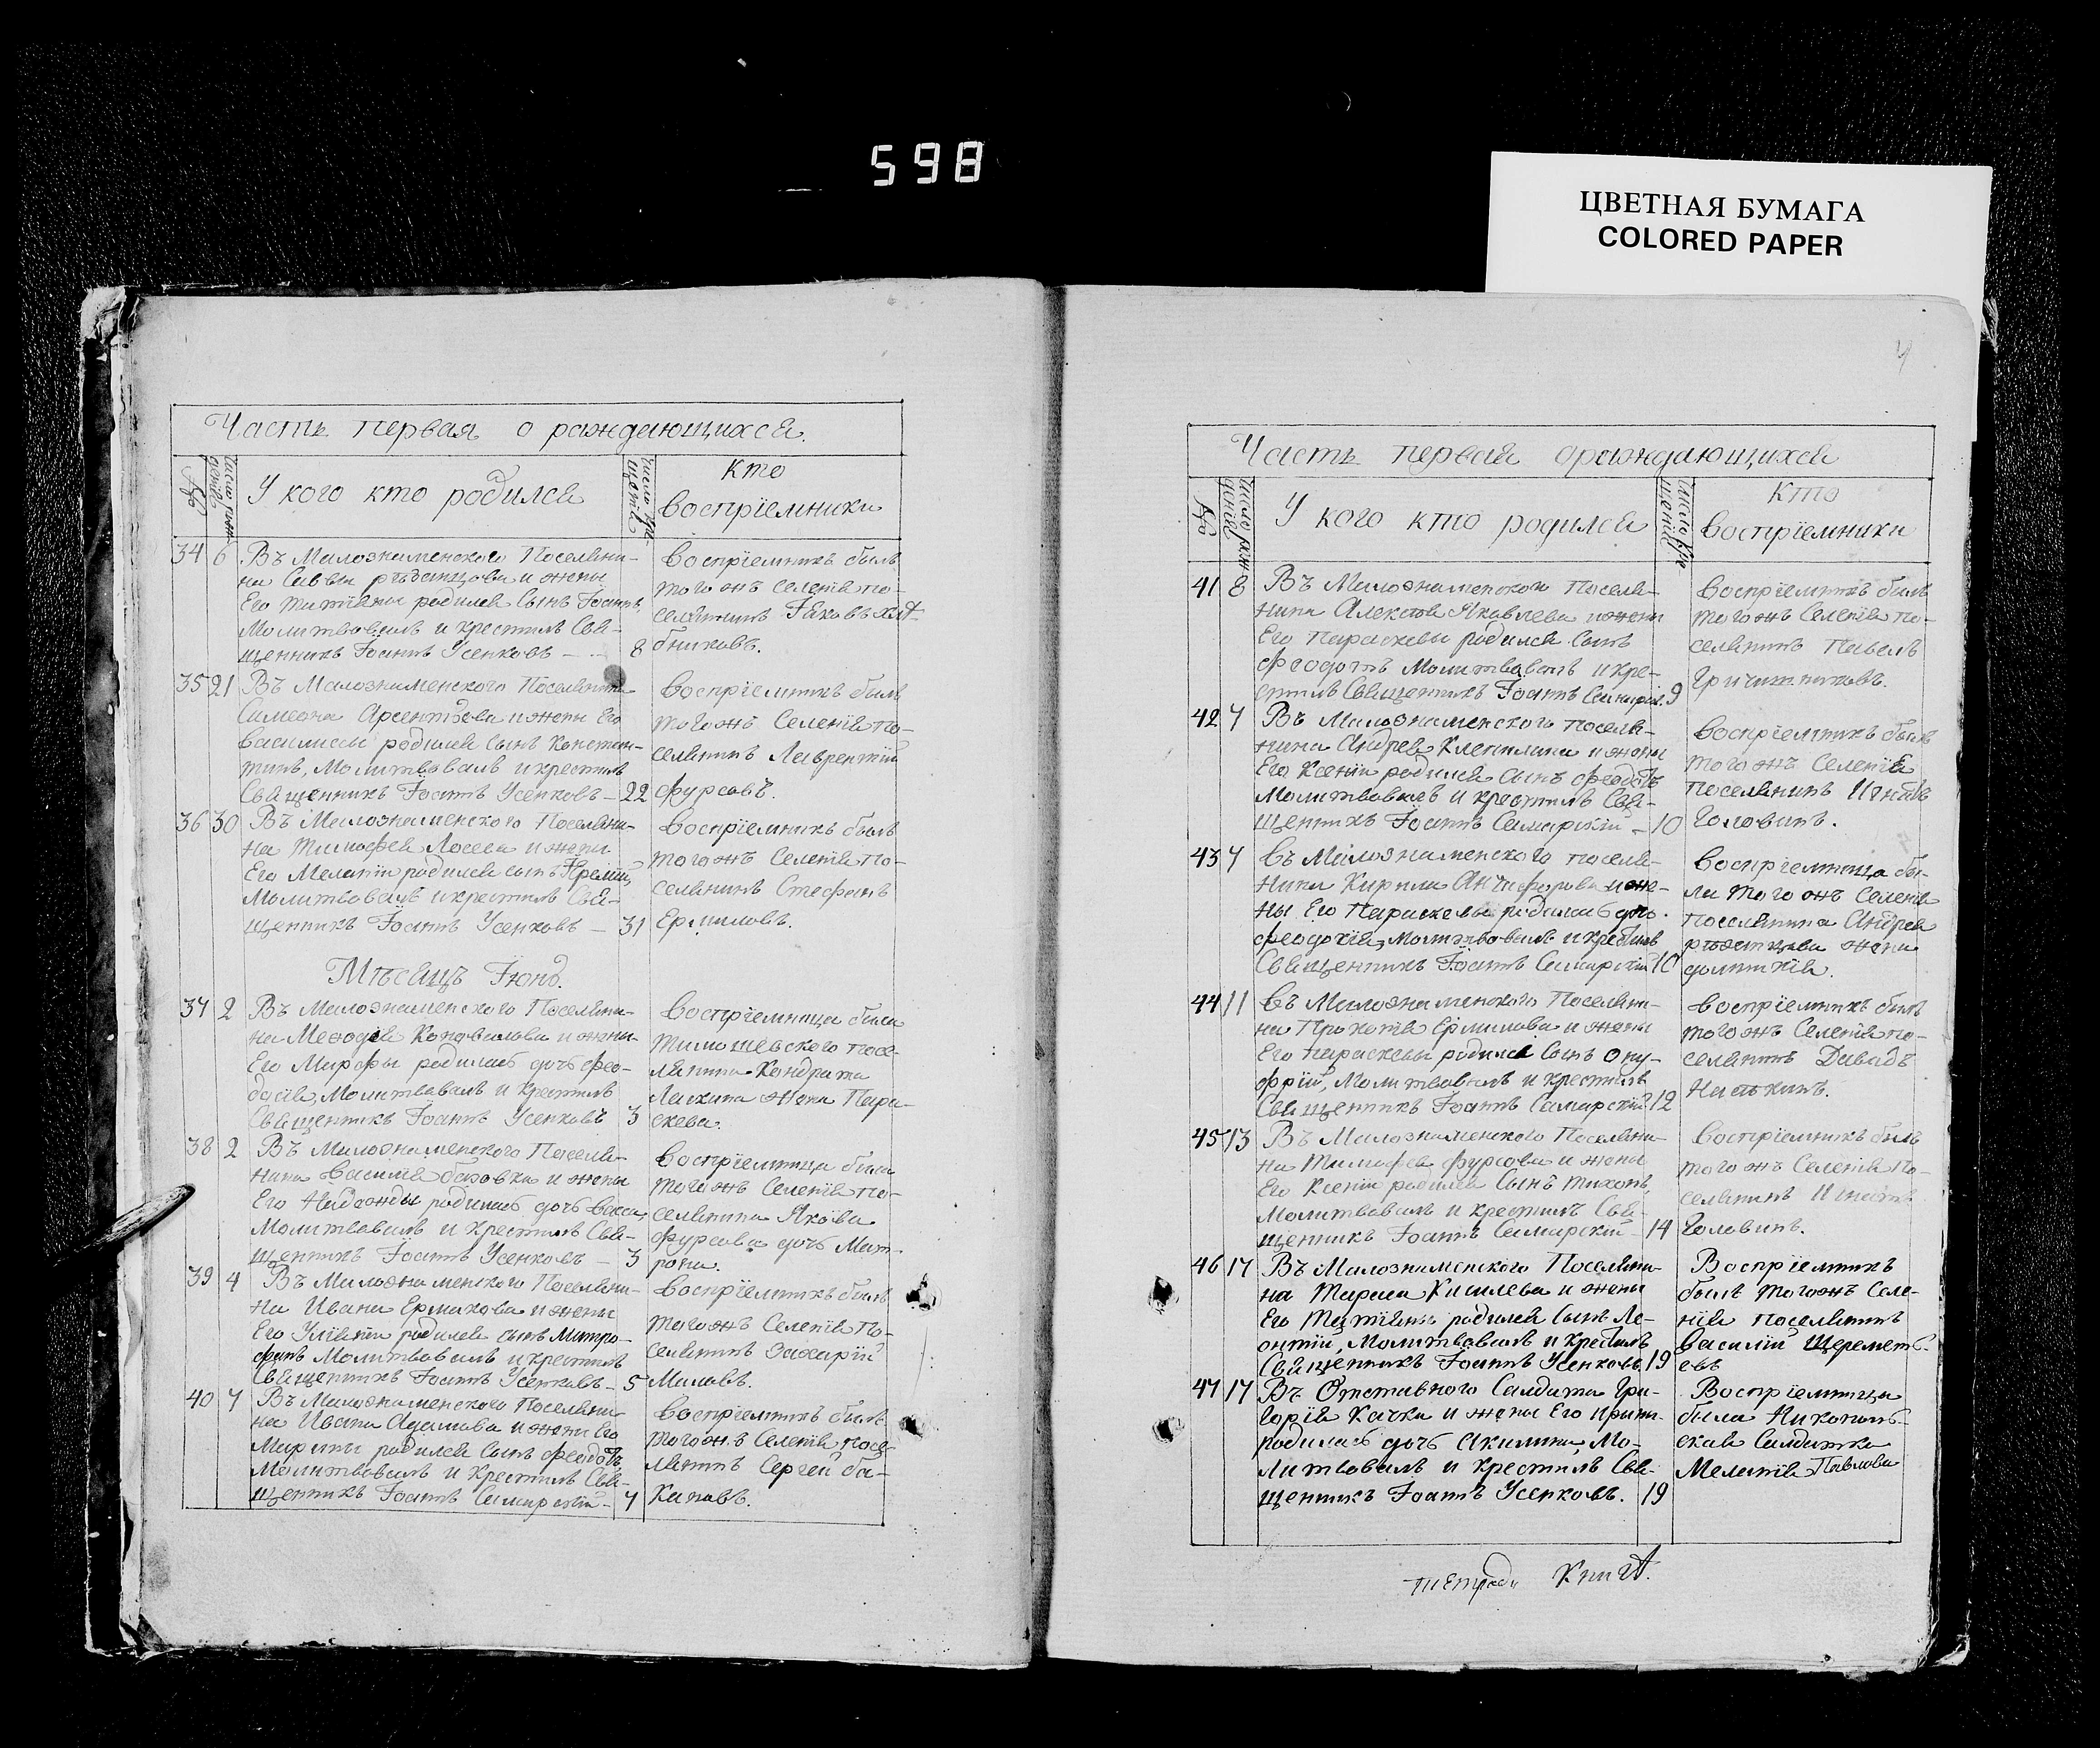 598
ЦВЕТНАЯ БУМАГА
COLORED PAPER
Часть первая о раждающихся.
№
число рож-
денія
У кого кто родился
число кре-
щенія
Кто
воспріемники
34 6 Въ Малознаменского Поселяни-
на Саввы и жены
Его Татіаны родился Сынъ Іоаннъ,
Молитвовалъ и крестилъ Свя-
щенникъ Іоаннъ Усенковъ – 8
воспріемникъ былъ
того жъ селенія по-
селянинъ Іаковъ Хлѣ-
бниковъ.
35 21 Въ Малознаменского Поселянина
Симеона Арсентьева и жены Его
василисы родился сынъ констан-
тинъ, Молитвовалъ и крестилъ
Священникъ Іоаннъ Усенковъ – 22
воспріемникъ былъ
того жъ Селенія по-
селянинъ Лаврентій
фурсовъ.
36 30 Въ Малознаменского Поселяни-
на Тимофея Лосева и жены
Его Меланіи родился сынъ
Молитвовалъ и крестилъ Свя-
щенникъ Іоаннъ Усенковъ – 31
воспріемникъ былъ
того жъ Селенія по-
селянинъ Стефанъ
Ермиловъ.
Мѣсяцъ Іюнь.
37 2 Въ Малознаменского Поселяни-
на Меѳодія Коновалова и жены
Его Марфы родилась дочь фео-
досія, Молитвовалъ и крестилъ
Священникъ Іоаннъ Усенковъ 3
воспріемница была
Тимошевского посе-
лянина Кондрата
Ласкина жена Пара-
скева.
38 2 Въ Малознаменского Поселя-
нина василія баховки и жены
Его Надежды родилась дочь васса,
Молитвовалъ и крестилъ Свя-
щенникъ Іоаннъ Усенковъ – 3
воспріемница была
того жъ Селенія по-
селянина Якова
фурсова дочь Мат-
рона.
39 4 Въ Малознаменского Поселяни-
на Ивана Ермакова и жены
Его Уліаніи родился сынъ Митро-
фанъ Молитвовалъ и крестилъ
Священникъ Іоаннъ Усенковъ – 5
воспріемникъ былъ
того жъ Селенія по-
селянинъ Захарій
Миловъ.
40 7 Въ Малознаменского Поселяни-
на Ивана Адамова и жены Его
Марины родился сынъ феодотъ,
Молитвовалъ и крестилъ Свя-
щенникъ Іоаннъ Самарскій – 7
воспріемникъ былъ
того жъ Селенія посе-
лянинъ Сергей ба-
кановъ.
Часть первая о раждающихся
№
число рож-
денія
У кого кто родился
число кре-
щенія
Кто
воспріемники
41 8 Въ Малознаменского Поселя-
нина Алексея Яковлева и жены
Его Параскевы родился сынъ
феодотъ Молитвовалъ и кре-
стилъ Священникъ Іоаннъ Самарскій. 9
воспріемникъ былъ
того жъ Селенія по-
селянинъ Павелъ
42 7 Въ Малознаменского поселя-
нина Андрея и жены
Его Ксеніи родился сынъ феодотъ
Молитвовалъ и крестилъ Свя-
щенникъ Іоаннъ Самарскій – 10
воспріемникъ былъ
того жъ Селенія
поселянинъ Игнатъ
Головинъ.
43 7 въ Малознаменского поселя-
нина Кирила Анциферова и же-
ны Его Параскевы родилась дочь
феодосія, молитвовалъ и крестилъ
Священникъ Іоаннъ Самарскій 10
воспріемница бы-
ла того жъ Селенія
поселянина Андрея
жена
44 11 въ Малознаменского Поселяни-
на Прокопія Ермилова и жены
Его Параскевы родился сынъ Ону-
фрій, Молитвовалъ и крестилъ
Священникъ Іоаннъ Самарскій 12
воспріемникъ былъ
того жъ Селенія по-
селянинъ Давидъ
45 13 Въ Малознаменского Поселяни-
на Тимофея фурсова и жены
Его Ксеніи родился Сынъ тихонъ,
Молитвовалъ и крестилъ Свя-
щенникъ Іоаннъ Самарскій – 14
воспріемникъ былъ
того жъ Селенія По-
селянинъ Игнатъ
Головинъ.
46 17 Въ Малознаменского Поселяни-
на Тараса Кисилева и жены
Его Татіаны родился сынъ Ле-
онтій, Молитвовалъ и крестилъ
Священникъ Іоаннъ Усенковъ 19
Воспріемникъ
былъ того жъ Селе-
нія поселянинъ
василій Щереметь-
евъ
47 17 Въ Отставного Салдата Гри-
горія Качка и жены Его Ирины
родилась дочь Акилина, Мо-
литвовалъ и крестилъ Свя-
щенникъ Іоаннъ Усенковъ. 19
Воспріемница
была Никополь-
ская Салдатка
Меланія Павлова
тетради Книга.